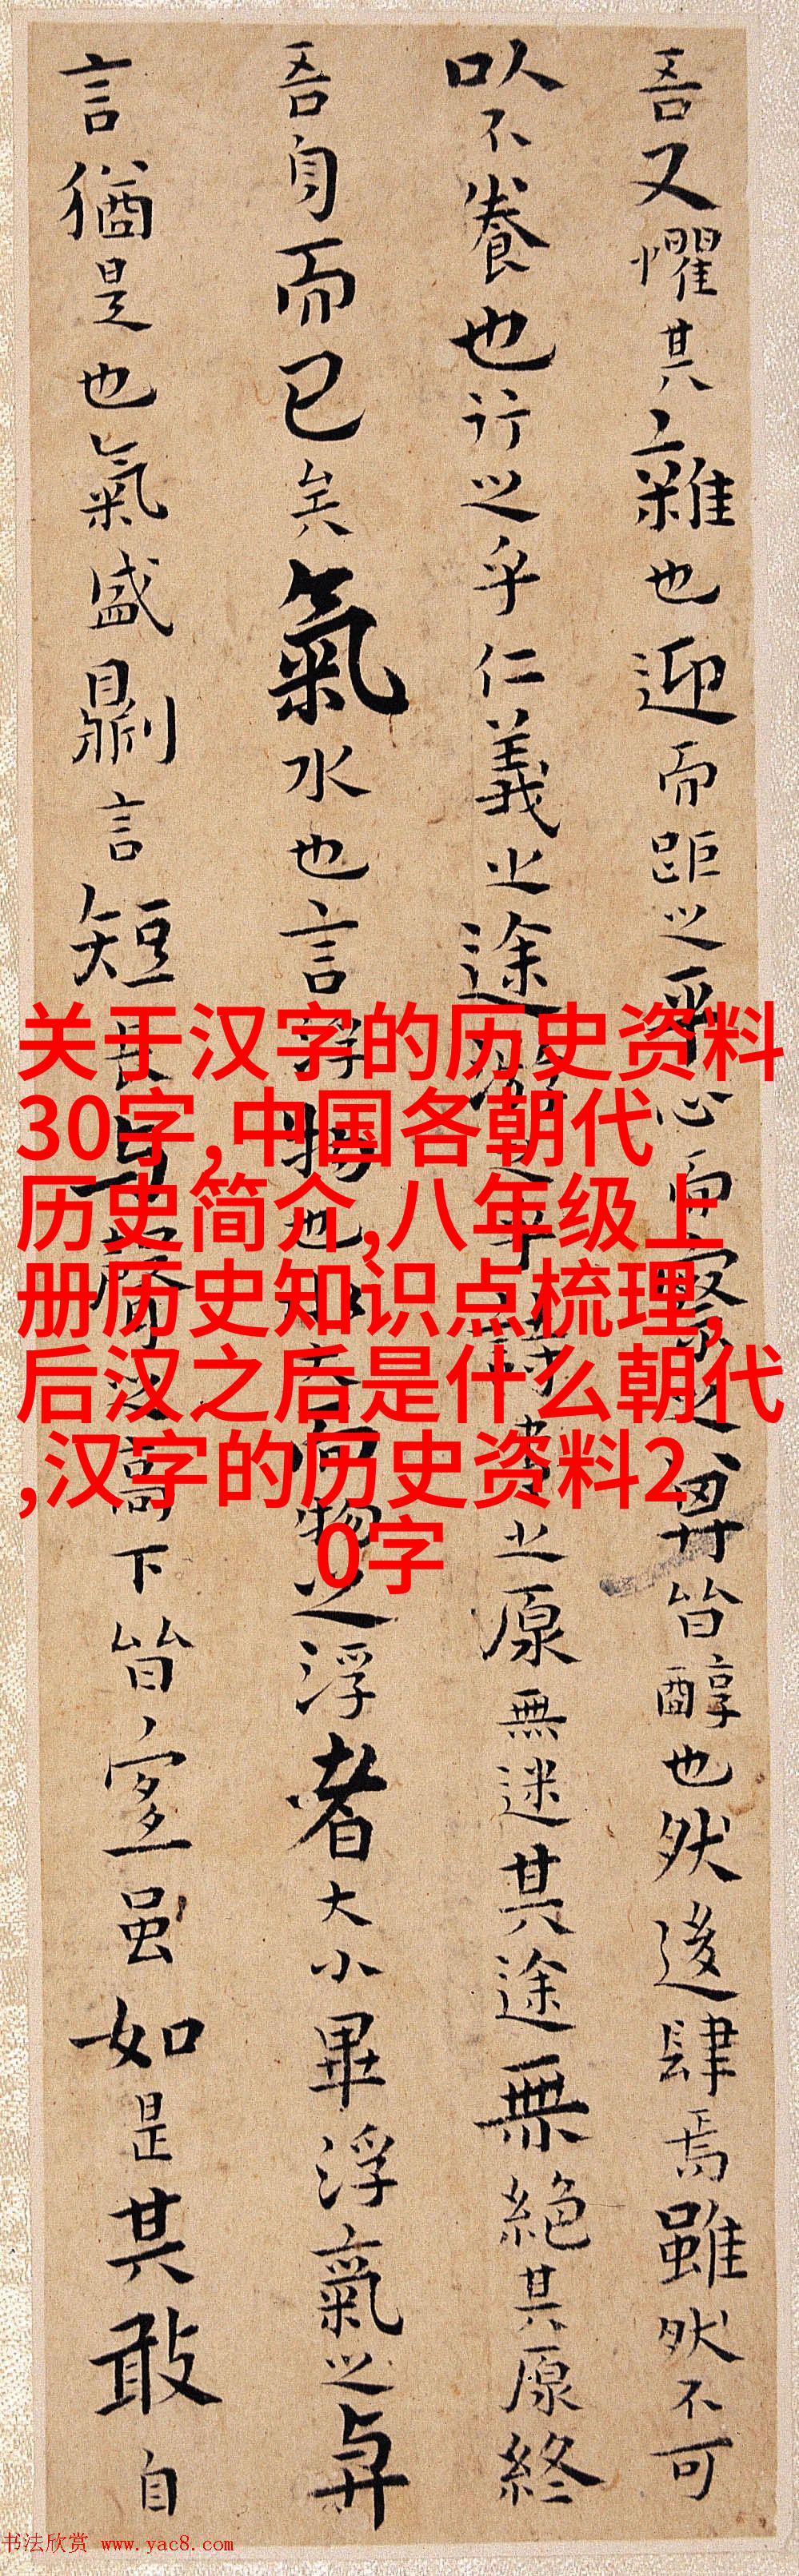 吾又懼其雜也迎而距之平心而察之其皆醇也然後肆焉雖然不可
以不養也行之乎仁義之途游之乎詩書之原無迷其途無絕其原終
吾身而已矣氣水也言浮物也水大而物之浮者大小畢浮氣之與
言猶是也氣盛則言短長與聲之高下皆宜虽如是其敢自
关于汉字的历史资料
30字,中国各朝代
历史简介,八年级上
册历史知识点梳理,
后汉之后是什么朝代
,汉字的历史资料2
0字
书法欣赏 www.yac8.com